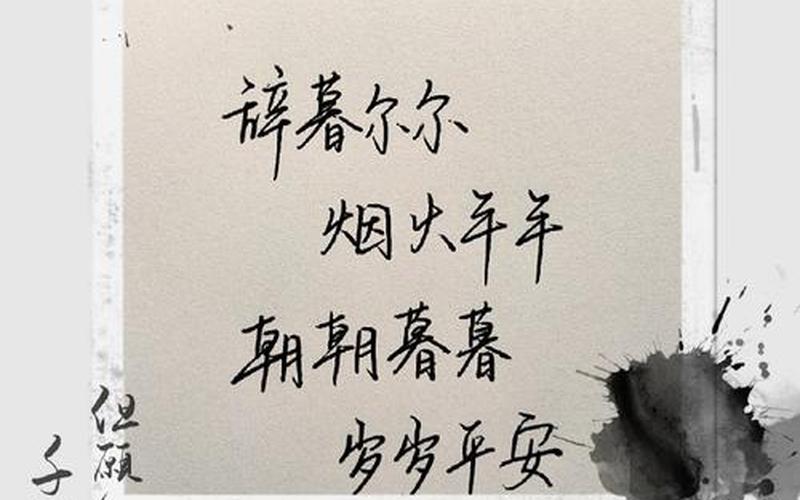 辞暮尔尔
烟火年年
朝朝暮暮
岁岁平安
但愿
子